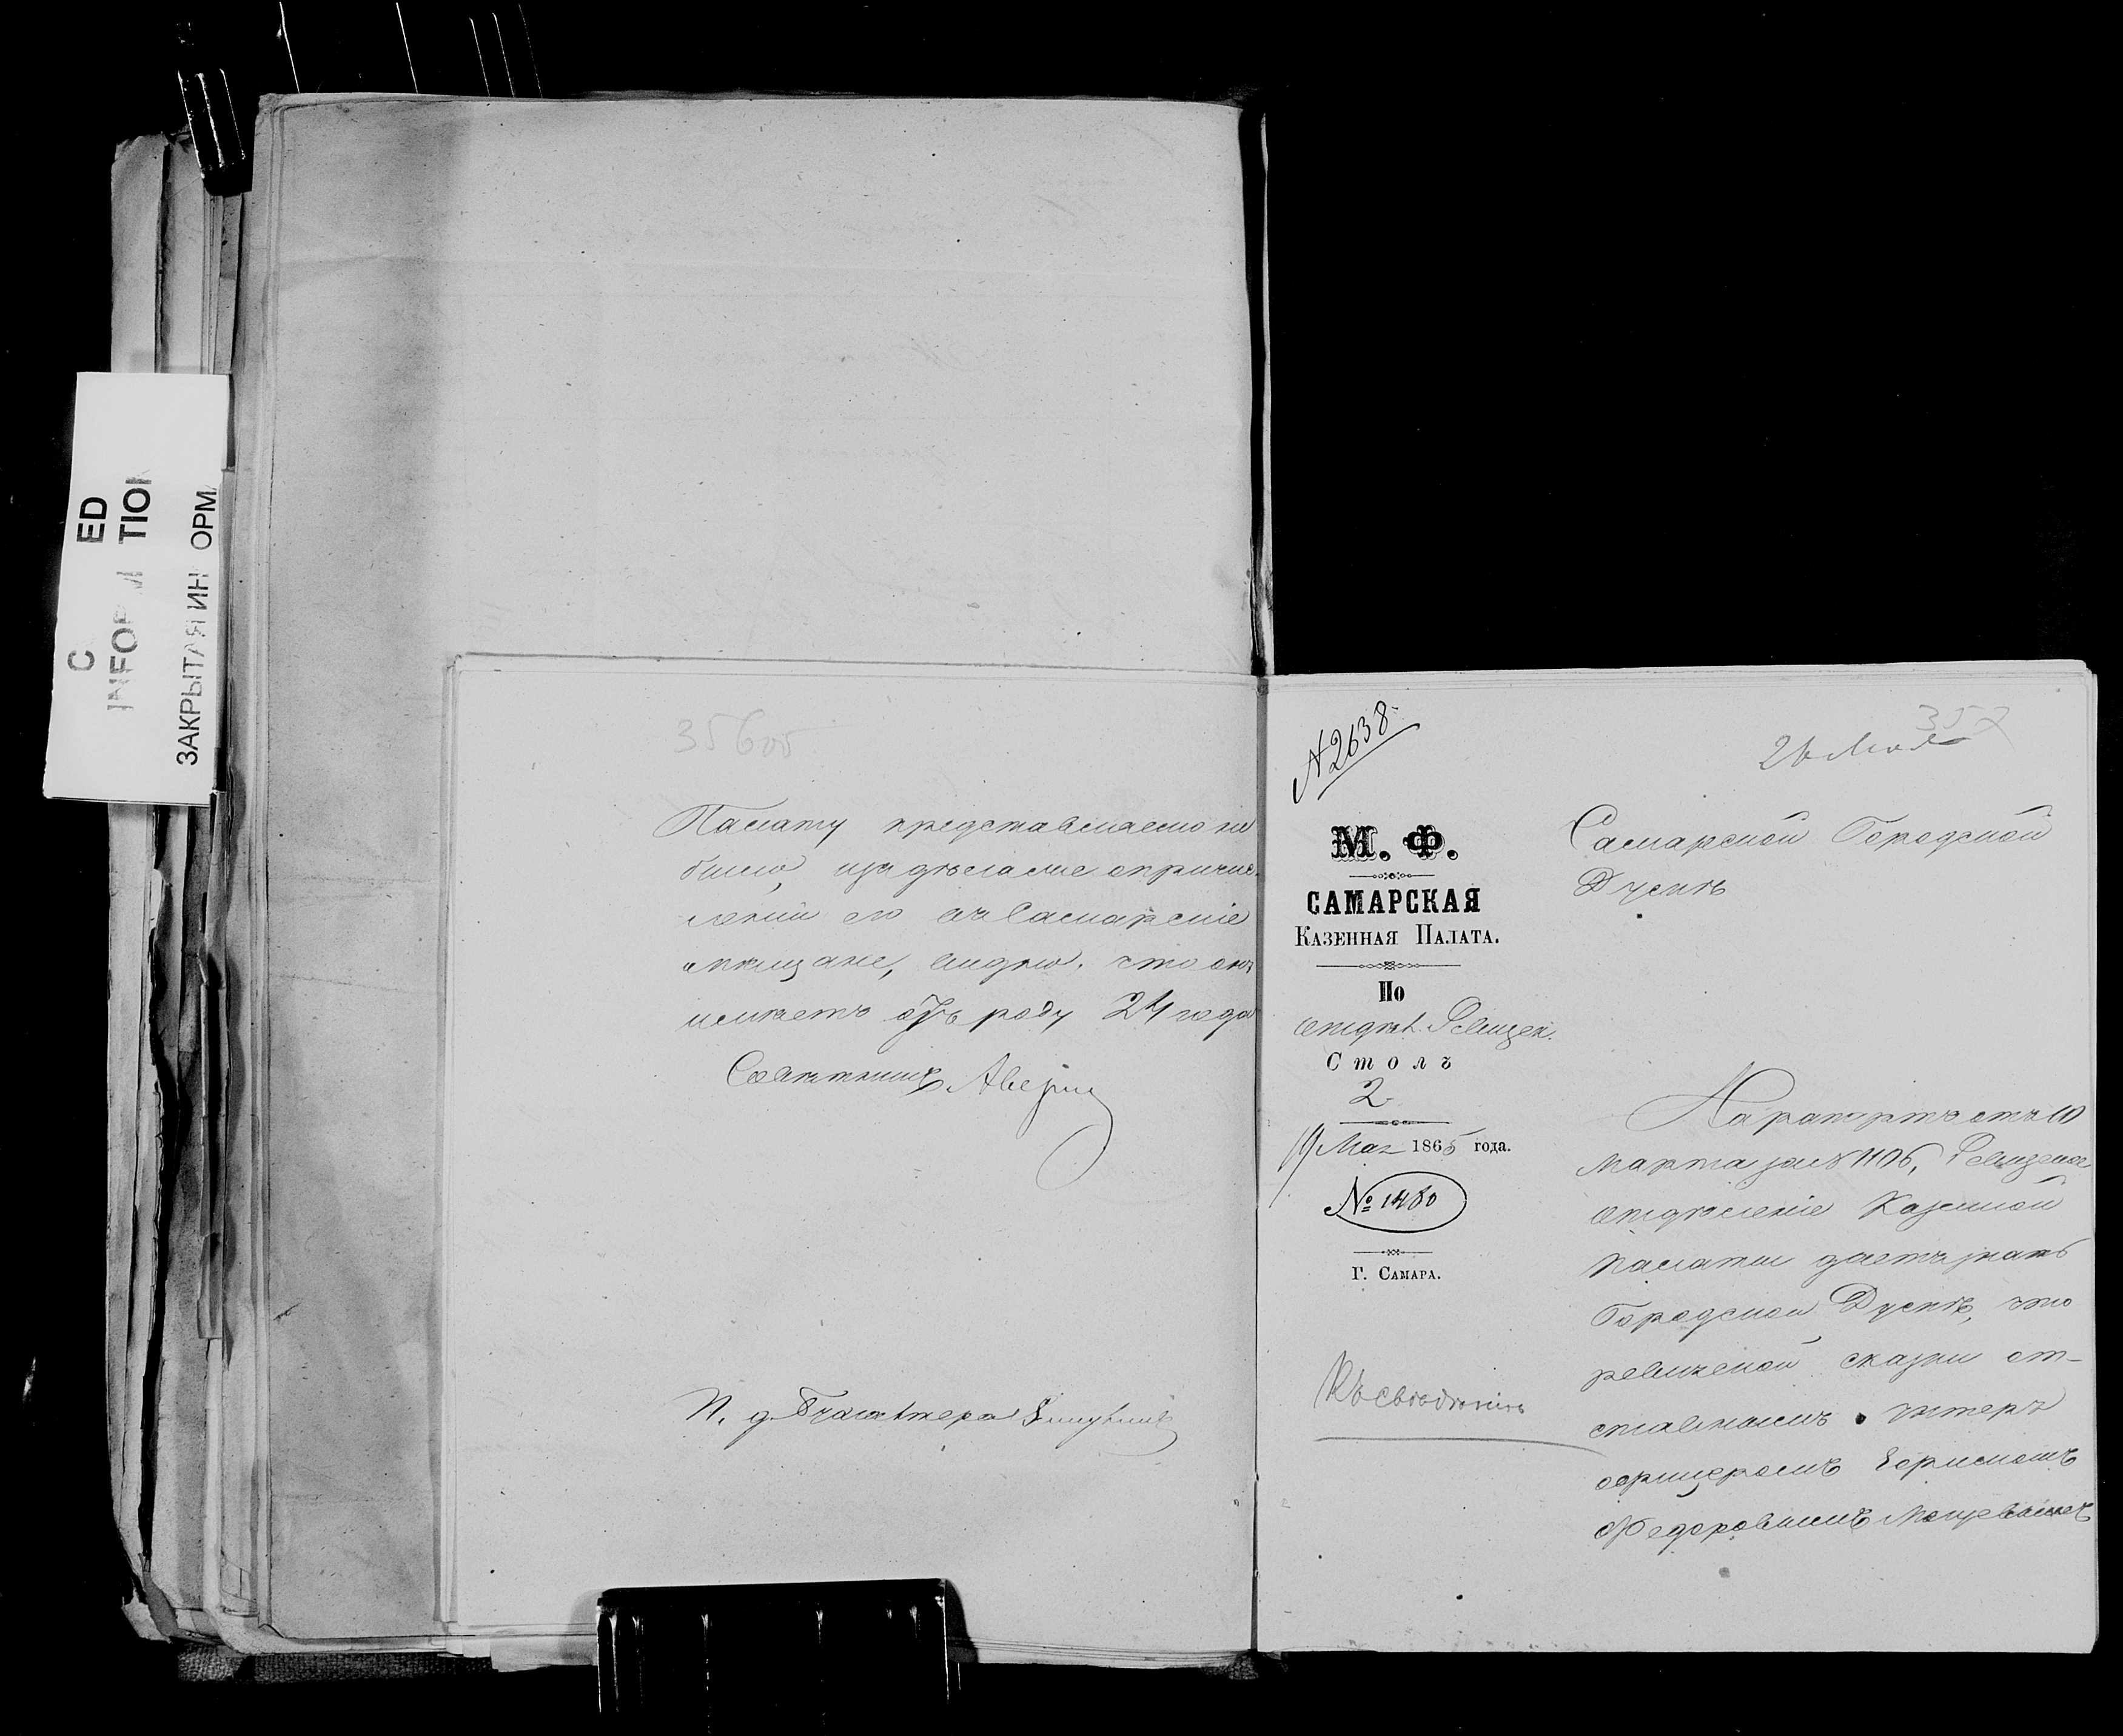 ED
C
INFOR M TION
ЗАКРЫТАЯ ИН ОРМА
35 боб
Палату представляемо не
было, из дѣла же о причис-
леніи его въ Самарскіе
мѣщане, видно, что онъ
имѣетъ отъ роду 24 года
Совѣтникъ Аверин
И. д. Бухгалтера
№ 2638.
352
26 Мая
М. Ф.
САМАРСКАЯ
КАЗЕННАЯ ПАЛАТА.
По
отдѣл. Ревизск.
Столъ
2
19 Мая 1865 года.
№ 1480
Г. САМАРА.
Къ свѣдѣнію
Самарской Городской
Думѣ
На рапортъ отъ 10
Марта за № 1106, Ревизское
отдѣленіе Казенной
Палаты даетъ знать
Городской Думѣ, что
ревизской сказки от-
ставнымъ унтеръ
офицеромъ
Федоровымъ